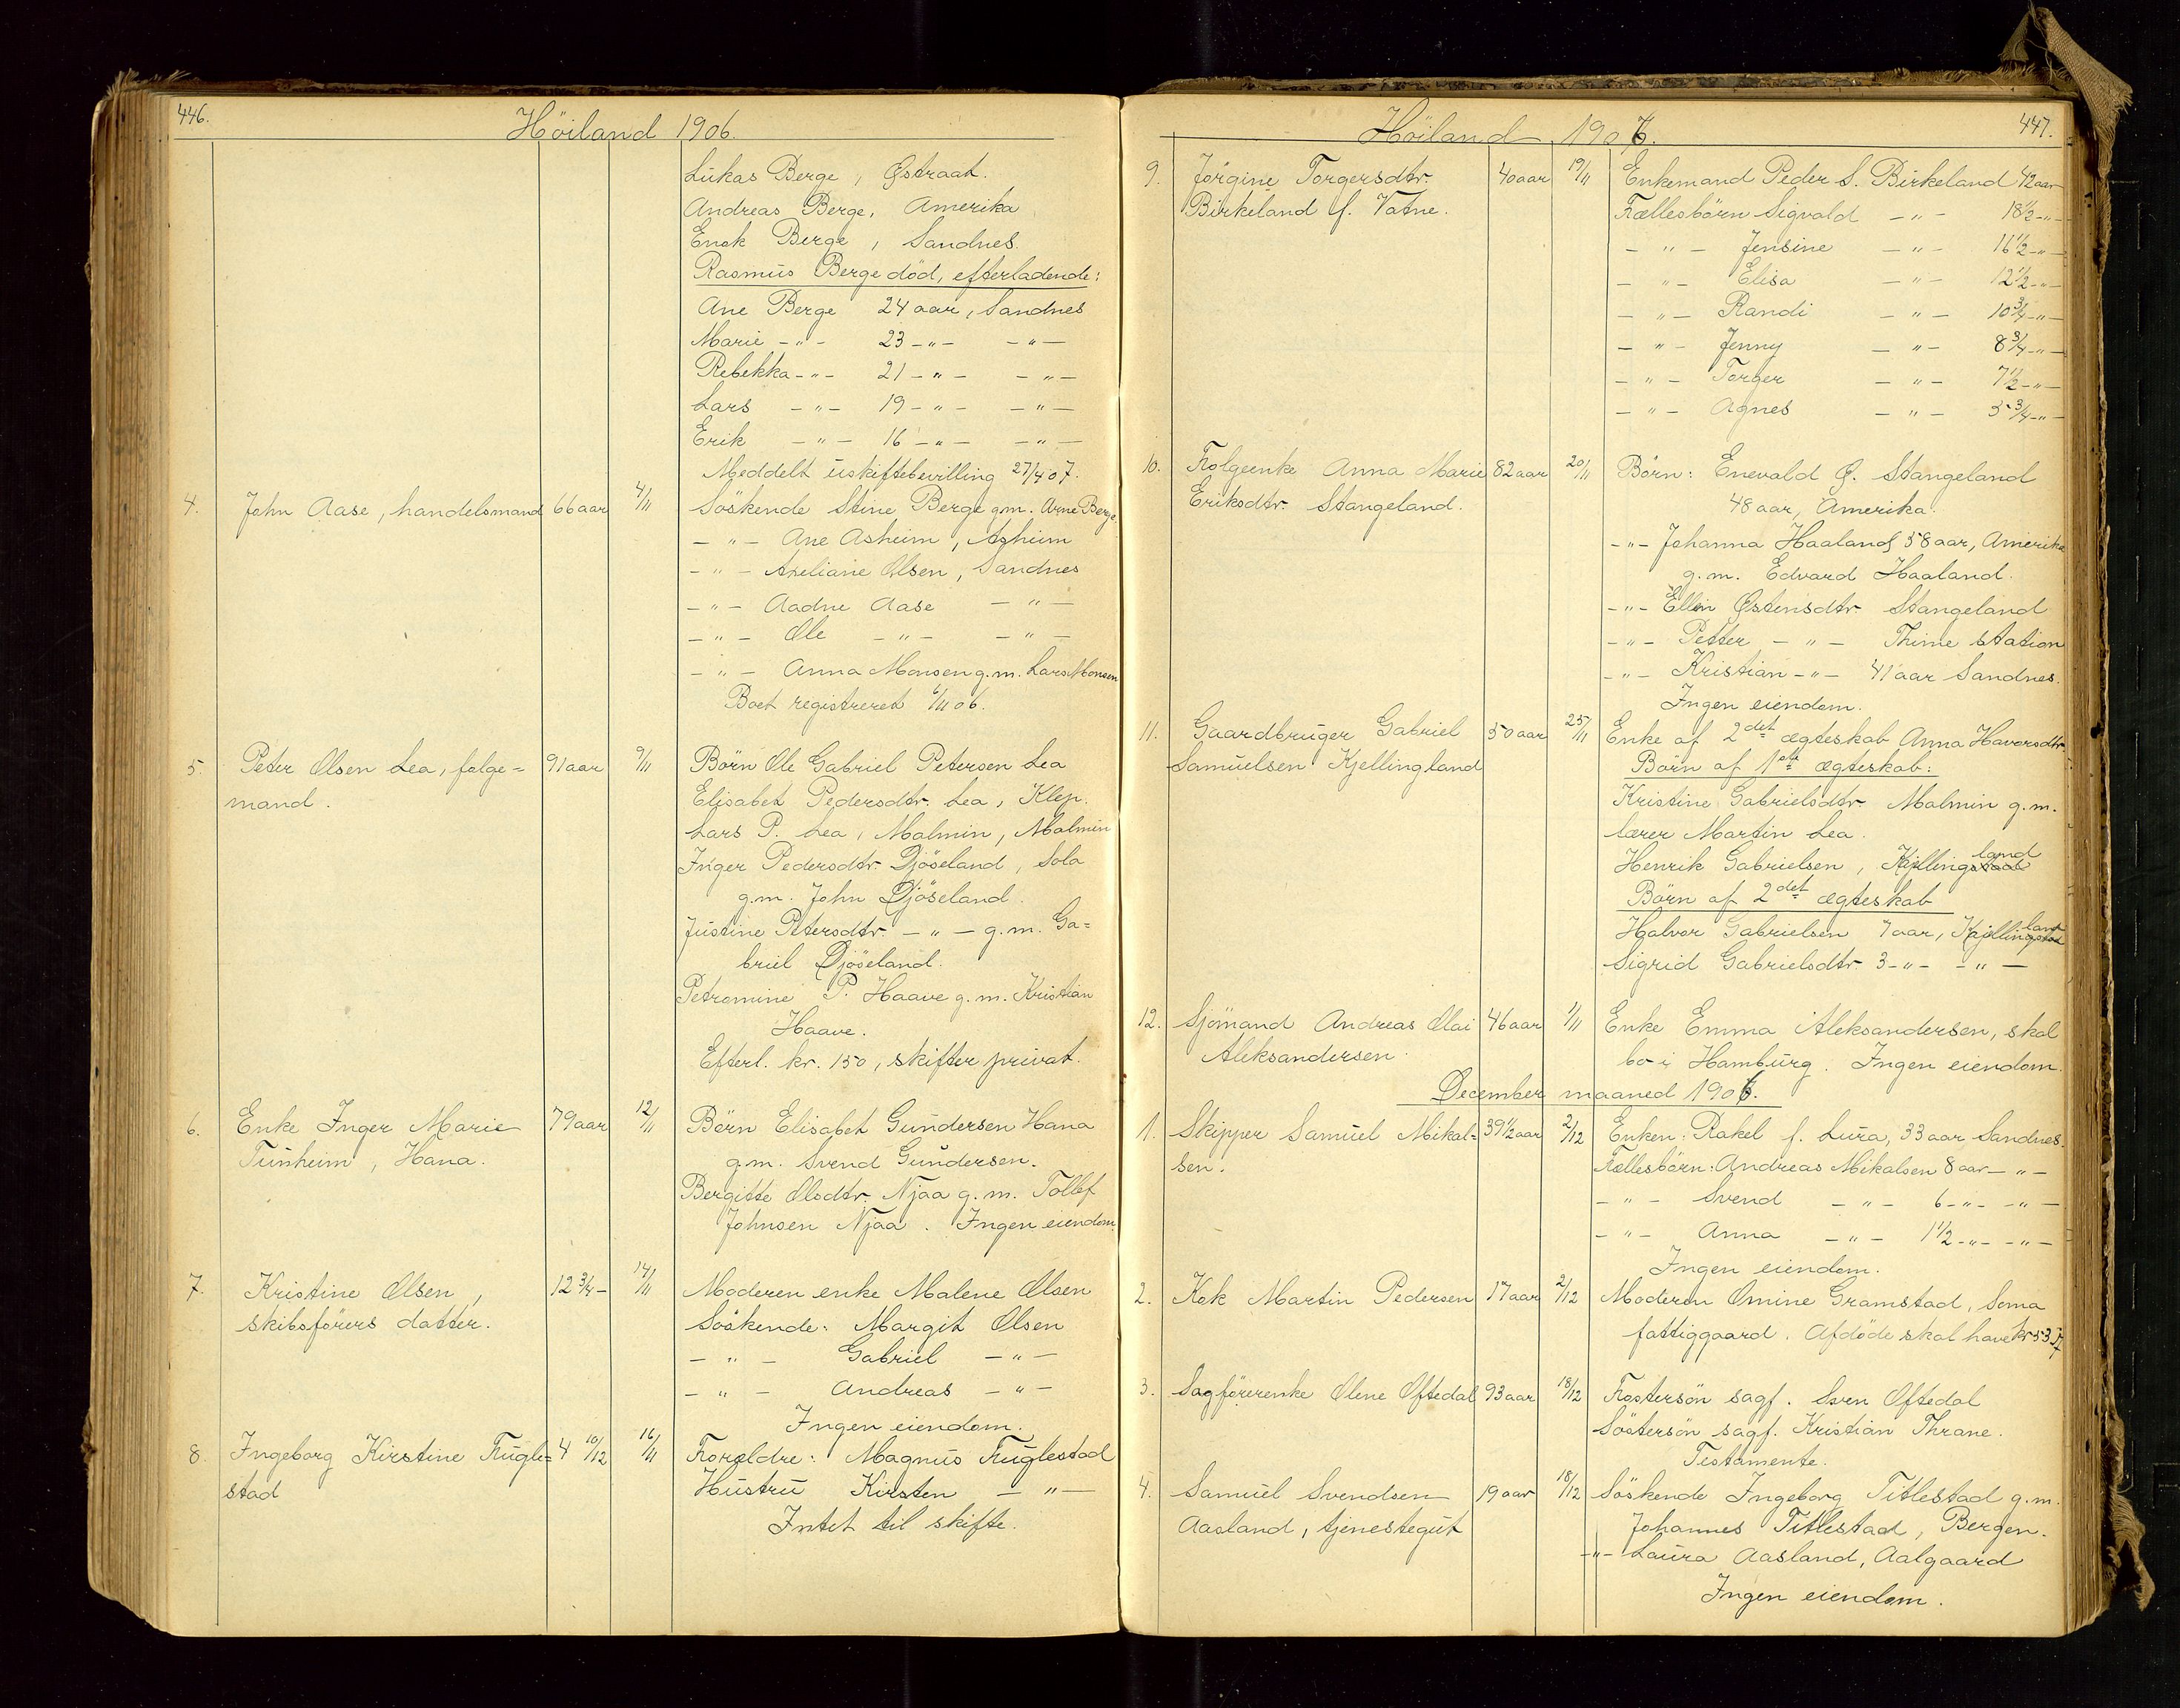 446.
Höiland 1906.
Lukas Berge, Østraat.
Andreas Berge, Amerika
Enok Berge, Sandnes.
Rasmus Berge död, efterladende:
Ane Berge 24 aar, Sandnes
Marie -"- 23 -"- -"-
Rebekka -"- 21 -"- -"-
Lars -"- 19 -"- -"-
Erik -"- 16 -"- -"-
Meddelt uskiftebevilling 27/4 07.
4. John Aase, handelsmand 66 aar 4/11 Söskende Stine Berge g.m. Arne Berge
-"- Ane Asheim, Asheim
-"- Axeliane Olsen, Sandnes
-"- Aadne Aase -"-
-"- Ole -"- -"-
-"- Anna Monsen g.m. Lars Monsen
Boet registreret 6/11 06.
5. Peter Olsen Lea, folge= 91 aar 9/11 Börn Ole Gabriel Petersen Lea
mand. Elisabet Pedersdtr. Lea, Klep.
Lars P. Lea, Malmin, Malmin
Inger Pedersdtr. Djöseland, Sola
g.m. John Djöseland.
Justine Petersdtr. -"- g.m. Ga=
briel Djöseland.
Petromine P. Haave g.m. Kristian
Haave.
Efterl. kr. 150, skifter privat.
6. Enke Inger Marie 79 aar 12/11 Börn Elisabet Gundersen Hana
Tunheim, Hana. g.m. Svend Gundersen.
Bergitte Olsdtr. Njaa g.m. Tollef
Johnsen Njaa. Ingen eiendom.
7. Kristine Olsen, 12 3/4 - 14/11 Moderen enke Malene Olsen
skibsförers datter. Söskende: Margit Olsen
-"- Gabriel -"-
-"- Andreas -"-
Ingen eiendom.
8. Ingeborg Kirstine Fugle= 4 10/12 16/11 Foreldre: Magnus Fuglestad
stad Hustru Kirsten -"-
Intet til skifte.
447.
Höiland 1906.
9. Jörgine Torgersdtr. 40 aar 19/11 Enkemand Peder S. Birkeland 42 aar
Birkeland f. Vatne. Fællesbörn Sigvald -"- 18 1/2 -"-
-"- Jensine -"- 16 1/2 -"-
-"- Elisa -"- 12 1/2 -"-
-"- Randi -"- 10 3/4 -"-
-"- Jenny -"- 8 3/4 -"-
-"- Torger -"- 7 1/2 -"-
-"- Agnes -"- 5 3/4 -"-
10. Folgeenke Anna Marie 82 aar 20/11 Börn: Enevald Ø. Stangeland
Eriksdtr. Stangeland. 48 aar, Amerika.
-"- Johanna Haaland 58 aar, Amerika
g.m. Edvard Haaland.
-"- Ellen Østensdtr. Stangeland
-"- Petter -"- Thime station
-"- Kristian -"- 41 aar Sandnes.
Ingen eiendom.
11. Gaardbruger Gabriel 50 aar 25/11 Enke af 2det ægteskab Anna Haversdtr
Samuelsen Kjellingland Börn af 1ste ægteskab:
Kristine Gabrielsdtr. Malmin g.m.
lærer Martin Lea.
Henrik Gabrielsen, Kjellingland
Börn af 2det ægteskab
Halvor Gabrielsen 7 aar, Kjellingland
Sigrid Gabrielsdtr. 3 -"- -"-
12. Sjömand Andreas Olai 46 aar 1/11 Enke Emma Aleksandersen, skal
Aleksandersen. bo i Hamburg. Ingen eiendom.
December maaned 1906.
1. Skipper Samuel Mikal= 39 1/2 aar 2/12 Enken: Rakel f. Lura, 33 aar Sandnes.
sen. Fællesbörn: Andreas Mikalsen 8 aar -"-
-"- Svend -"- 6 -"- -"-
-"- Anna -"- 1 1/2 -"- -"-
Ingen eiendom.
2. Kok Martin Pedersen 17 aar 2/12 Moderen Omine Gramstad, Soma
fattiggaard. Afdöde skal have kr 53
3. Sagförerenke Olene Oftedal 93 aar 18/12 Fostersön sagf. Sven Oftedal
Söstersön sagf. Kristian Thrane.
Testamente.
4. Samuel Svendsen 19 aar 18/12 Söskende Ingeborg Titlestad g.m.
Aasland, tjenestegut Johannes Titlestad, Bergen.
-"- Laura Aasland, Aalgaard
Ingen eiendom.